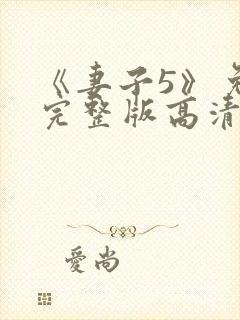 《妻子5》免
完整版高清
爱尚